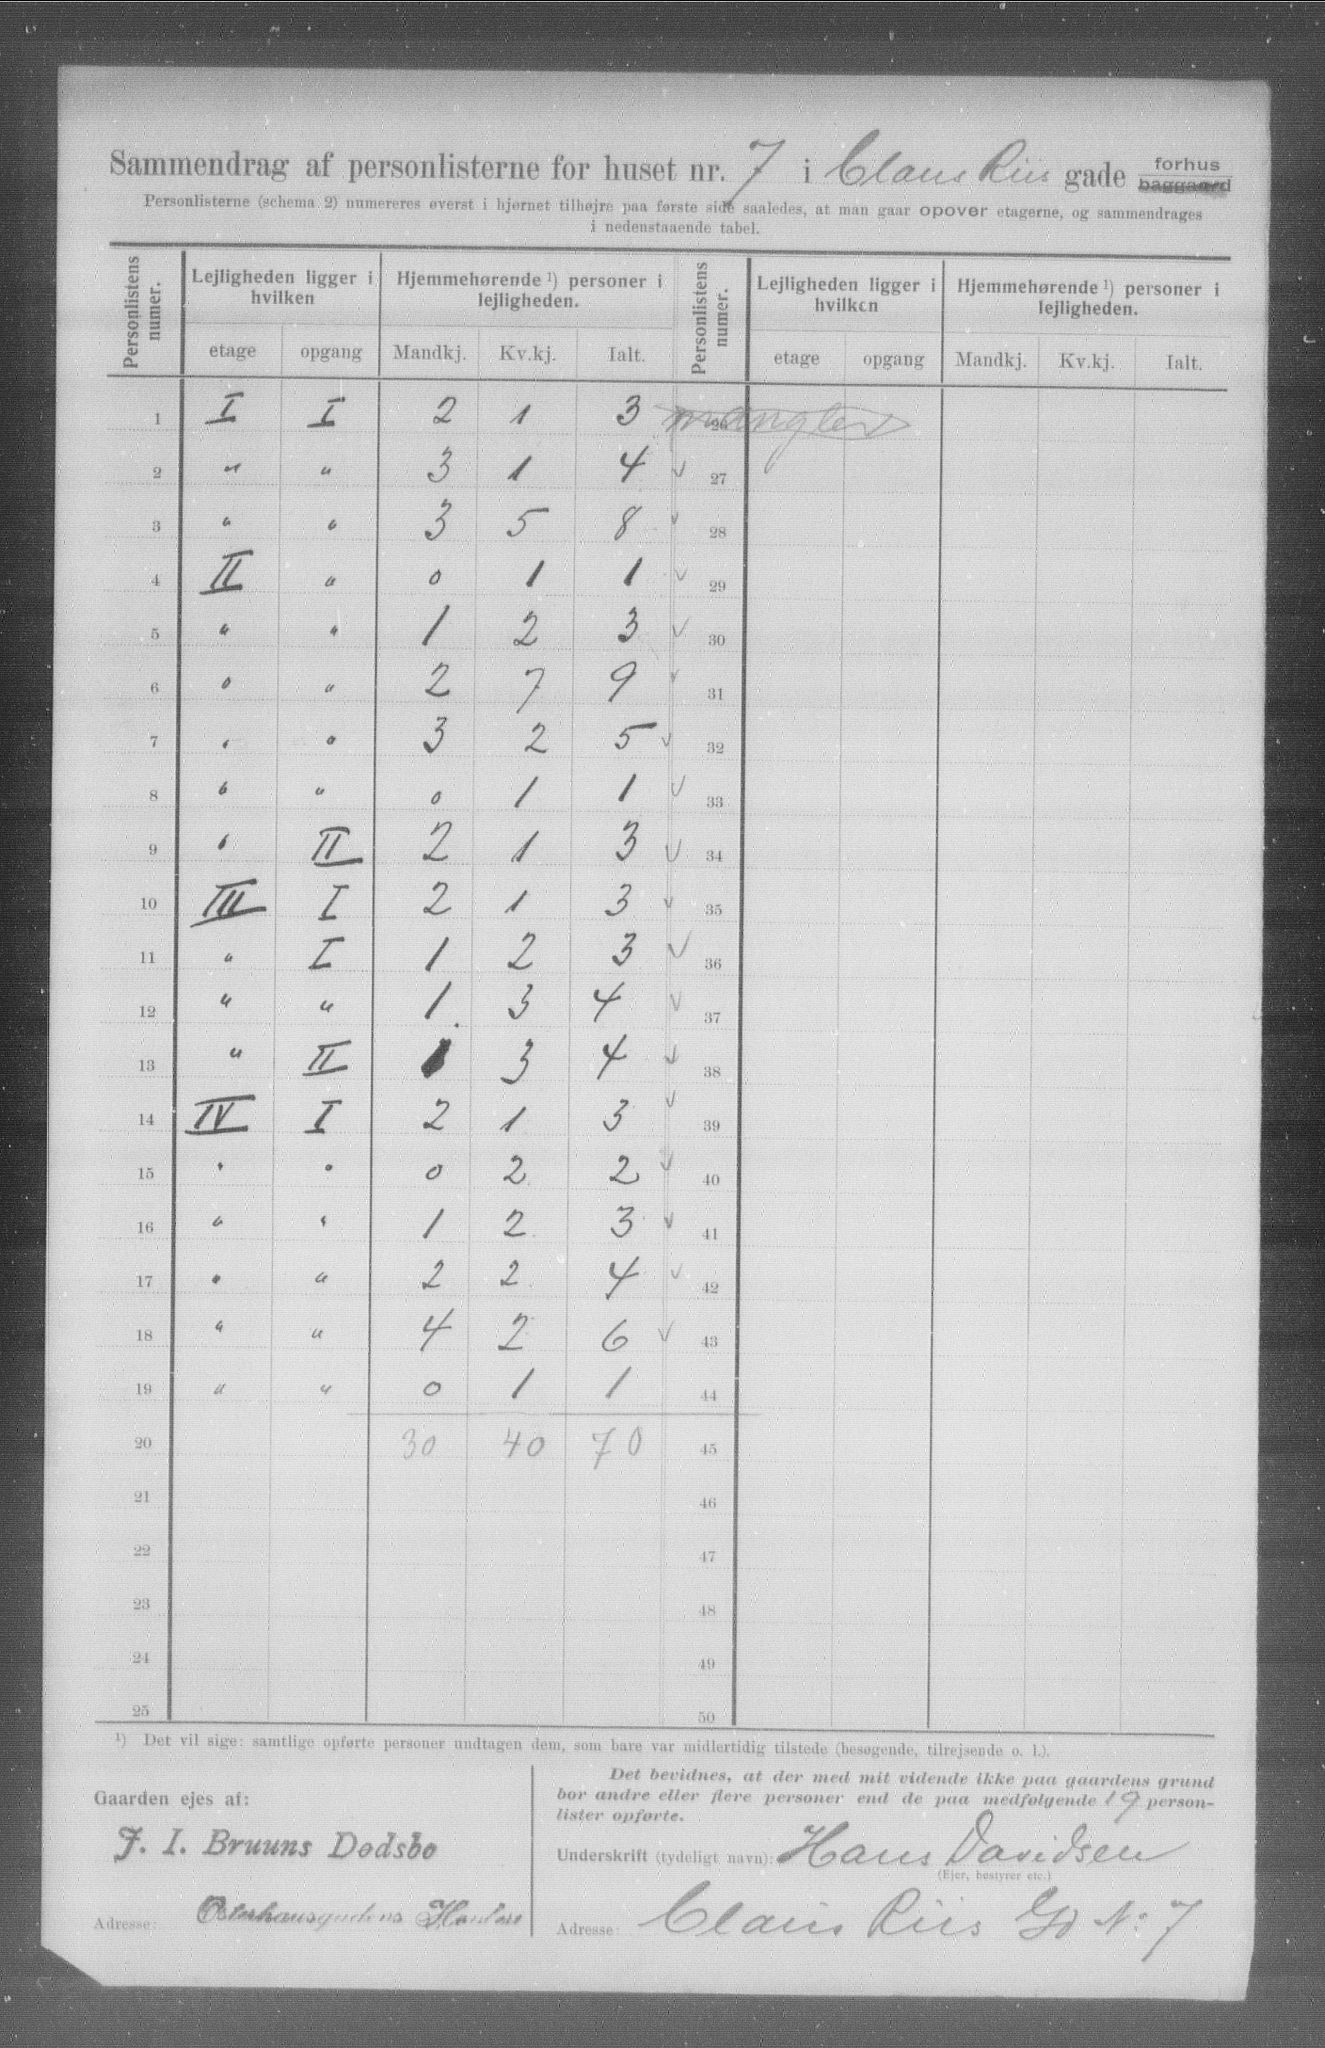 Sammendrag af personlisterne for huset nr. 7 i Claus Riis gade forhus
baggaard
Personlisterne (schema 2) numereres øverst i hjørnet tilhøjre paa første side saaledes, at man gaar opover etagerne, og sammendrages
i nedenstaaende tabel.
Personlistens numer. Lejligheden ligger i hvilken Hjemmehørende ¹) personer i lejligheden. Personlistens numer. Lejligheden ligger i hvilken Hjemmehørende ¹) personer i lejligheden.
etage opgang Mandkj. Kv.kj. Ialt. etage opgang Mandkj. Kv.kj. Ialt.
1 I I 2 1 3 mangler 26
2 " " 3 1 4 v 27
3 " " 3 5 8 v 28
4 II " 0 1 1 v 29
5 " " 1 2 3 v 30
6 " " 2 7 9 v 31
7 " " 3 2 5 v 32
8 " " 0 1 1 v 33
9 " II 2 1 3 v 34
10 III I 2 1 3 v 35
11 " I 1 2 3 v 36
12 " " 1 3 4 v 37
13 " II 1 3 4 v 38
14 IV I 2 1 3 v 39
15 " " 0 2 2 v 40
16 " " 1 2 3 v 41
17 " " 2 2 4 v 42
18 " " 4 2 6 v 43
19 " " 0 1 1 44
20 30 40 70 45
21 46
22 47
23 48
24 49
25 50
¹) Det vil sige: samtlige opførte personer undtagen dem, som bare var midlertidig tilstede (besøgende, tilrejsende o. l.).
Gaarden ejes af:
J. I. Bruuns Dødsbo
Adresse:
Det bevidnes, at der med mit vidende ikke paa gaardens grund
bor andre eller flere personer end de paa medfølgende 19 person-
lister opførte.
Underskrift (tydeligt navn): Hans Davidsen
(Ejer, bestyrer etc.)
Adresse: Claus Riis Gd No 7